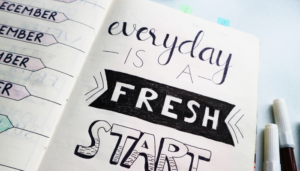 DECEMBER
EMBER
EMBER
BER
everyday
- IS - A -
FRESH
START